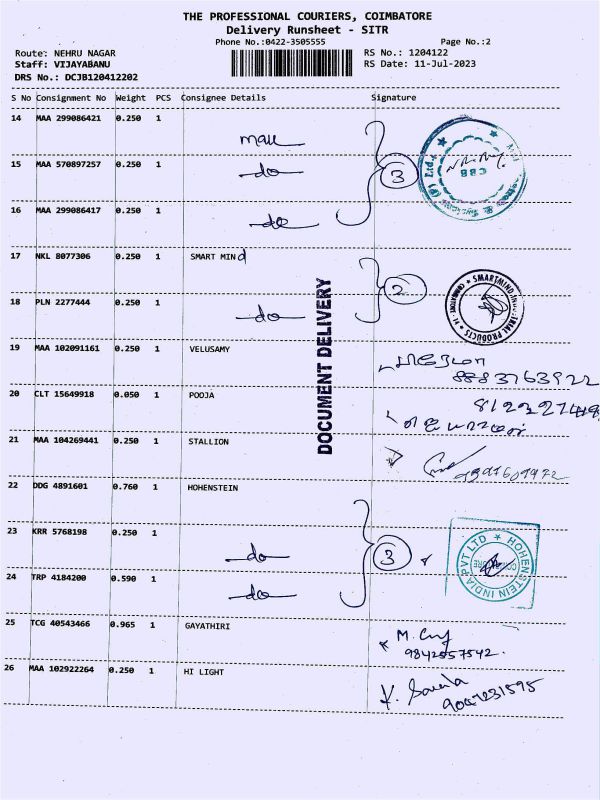 THE PROFESSIONAL COURIERS, COIMBATORE
Delivery Runsheet - SITR
Phone No.:0422-3505555 Page No.:2
Route: NEHRU NAGAR RS No.: 1204122
Staff: VIJAYABANU RS Date: 11-Jul-2023
DRS No.: DCJB120412202
S No Consignment No Weight PCS Consignee Details Signature
14 MAA 299086421 0.250 1
15 MAA 570897257 0.250 1 do
3
16 MAA 299086417 0.250 1 do
17 NKL 8077306 0.250 1 SMART MINd
2
18 PLN 2277444 0.250 1 do
DOCUMENT DELIVERY
19 MAA 102091161 0.250 1 VELUSAMY
8883763922
20 CLT 15649918 0.050 1 POOJA
21 MAA 104269441 0.250 1 STALLION
22 DDG 4891601 0.760 1 HOHENSTEIN
23 KRR 5768198 0.250 1 do
3
HOHENSTEIN INDIA PVT LTD
24 TRP 4184200 0.590 1 do
25 TCG 40543466 0.965 1 GAYATHIRI
9842557542.
26 MAA 102922264 0.250 1 HI LIGHT